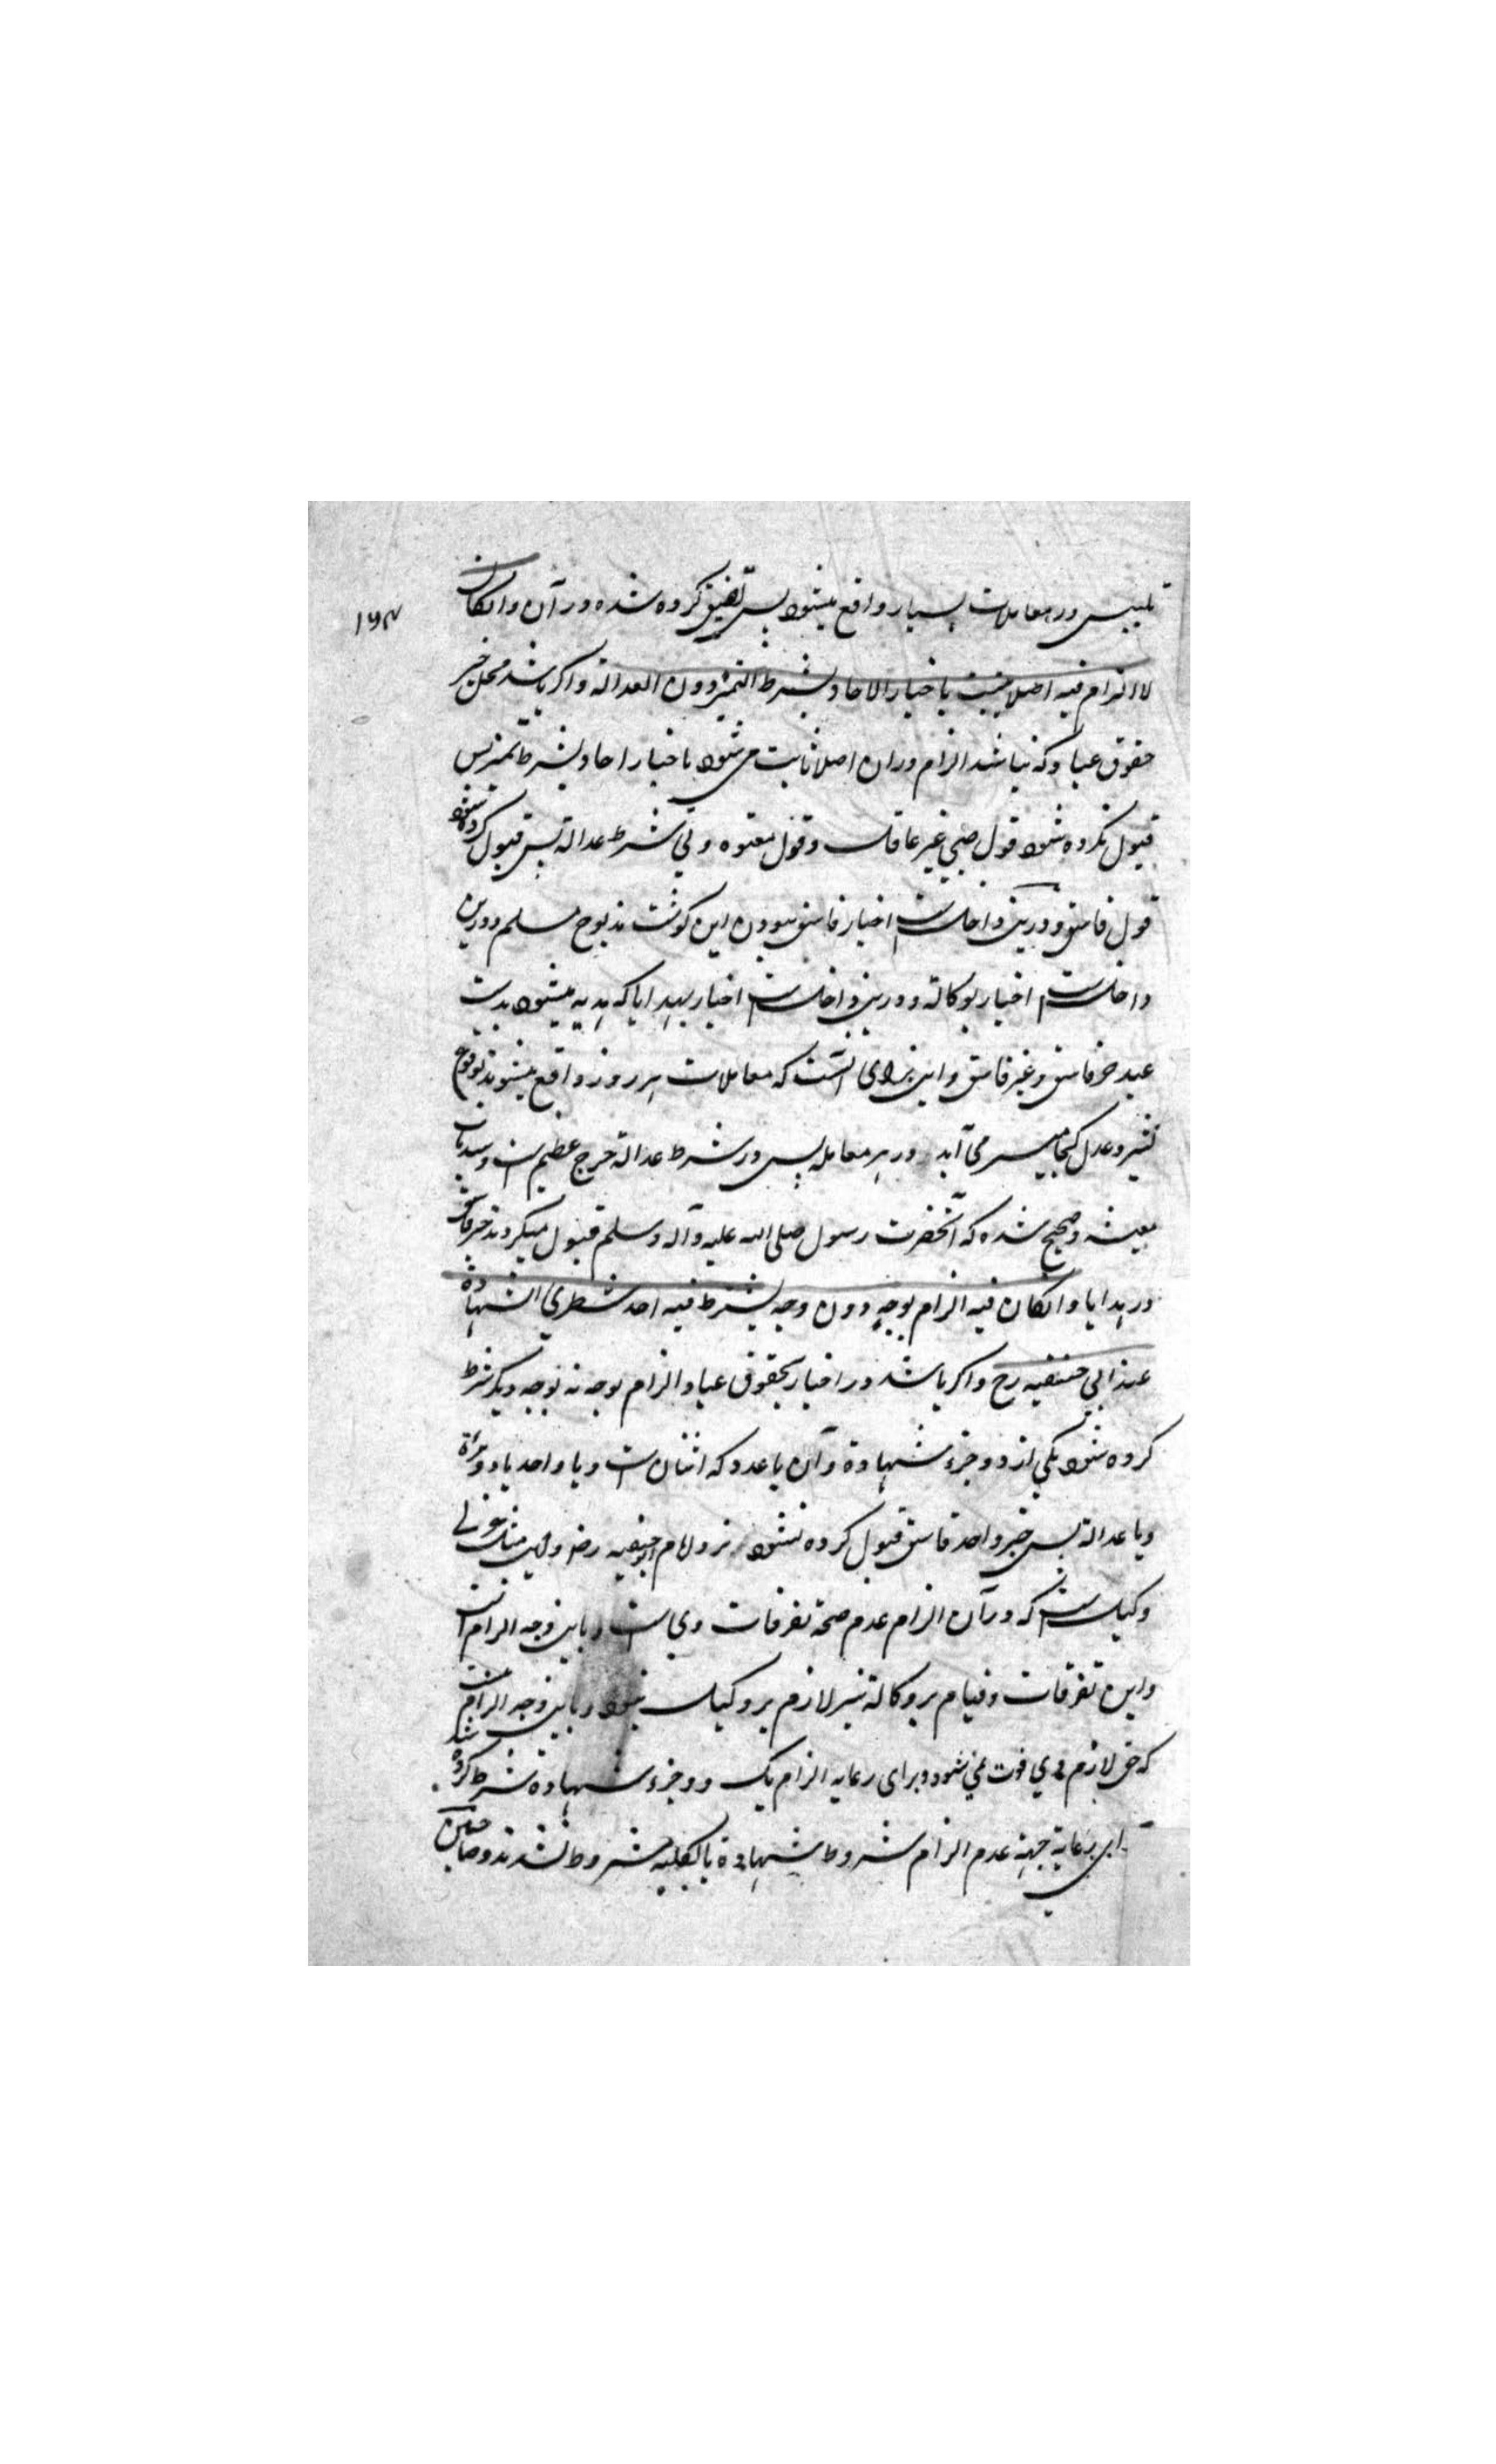 ۱۶۴
تلبیس در معاملات بسیار واقع میشود پس تضییق کرده شده در آن وان کان
لا الزام فیه اصلا یثبت باخبار الاحاد بشرط التمییز دون العدالة و اگر باشد محل خبر
حقوق عباد که نباشد الزام دران اصلا ثابت می شود باخبار احاد بشرط تمیز پس
قبول نکرده شود قول صبی غیر عاقل و قول معتوه و بی شرط عدالة پس قبول کرده شود
قول فاسق و درین داخل است اخبار فاسق ببودن این گوشت مذبوح مسلم و درین
داخل است اخبار بوکالة و درین داخل است اخبار بهدایا که هدیه میشود بدست
عبد خر فاسق و غیر فاسق و این برای آنست که معاملات هر روز واقع میشوند بوقوع
کثیر و عدل کجا میسر می آید در هر معامله پس در شرط عدالة حرج عظیم است و سد باب
معیشه و صحیح شده که آنحضرت رسول صلی الله علیه و آله و سلم قبول میکردند خبر فاسق
در هدایا وان کان فیه الزام بوجه دون وجه یشترط فیه احد شطری الشهادة
عند ابی حنیفه رح و اگر باشد در اخبار بحقوق عباد الزام بوجه نه بوجه دیگر شرط
کرده شود یکی از دو جزء شهادة و آن یا عدد که اثنان است و یا واحد با دو مراة
و یا عدالة پس خبر واحد فاسق قبول کرده نشود نزد امام ابوحنیفه رض و این مثل عزل
وکیل است که در آن الزام عدم صحة تصرفات وی است و باین وجه الزام است
و این تصرفات و قیام بر وکالة نیز لازم بر وکیل نبود و باین وجه الزام نیست
که حق لازم وی فوت نمی شود و برای رعایه الزام یک دو جزء شهادة شرط کرده شد
برای رعایة جهة عدم الزام شروط شهادة بالکلیه مشروط نشدند و صاحبین